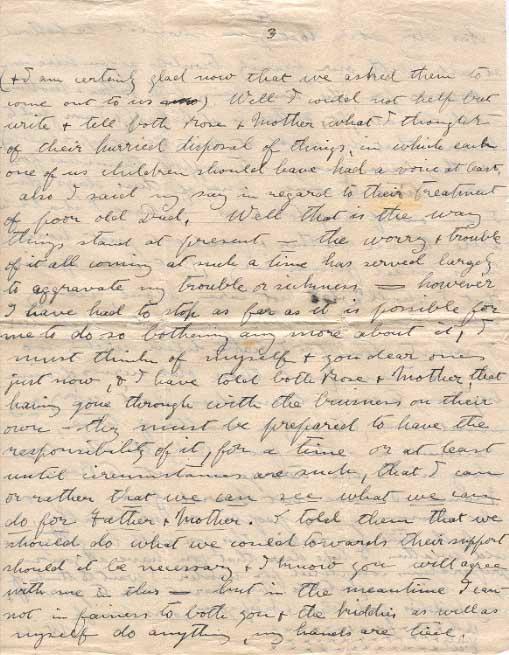 3
(& I am certainly glad now that we asked them to
come out to us) Well I could not help but
write & tell both Rose & Mother what I thought
of their hurried disposal of things, in which each
one of us children should have had a voice at least,
also I said my say in regard to their treatment
of poor old Dad. Well that is the way
things stand at present — the worry & trouble
of it all coming at such a time has served largely
to aggravate my trouble or sickness — however
I have had to stop as far as it is possible for
me to do so bothering any more about it, I
must think of myself & you dear ones
just now, & I have told both Rose & Mother, that
having gone through with the business on their
own — they must be prepared to have the
responsibility of it, for a time or at least
until circumstances are such, that I can
or rather that we can see what we can
do for Father & Mother. I told them that we
should do what we could towards their support
should it be necessary & I know you will agree
with me in this — but in the meantime I can
not in fairness to both you & the kiddies as well as
myself do anything, my hands are tied.